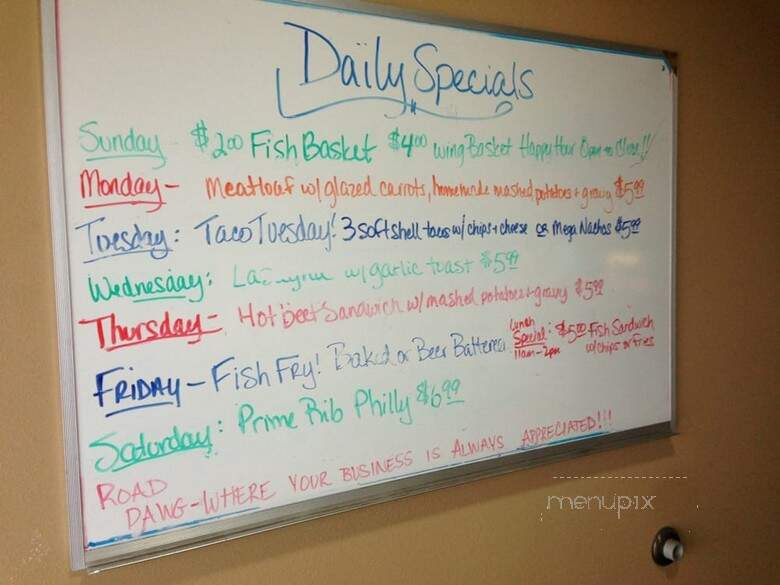 Daily Specials
Sunday $2.00 Fish Basket $4.00 Wing Basket Happy Hour Open to Close!!
Monday - Meatloaf w/ glazed carrots, homemade mashed potatoes + gravy $5.99
Tuesday: Taco Tuesday! 3 soft shell tacos w/ chips + cheese or Mega Nachos $5.99
Wednesday: w/ garlic toast $5.99
Thursday - Hot beef Sandwich w/ mashed potatoes + gravy $5.99
Friday - Fish Fry! Baked or Beer Battered
Lunch Special: 11am-2pm $5.00 Fish Sandwich w/ chips or fries
Saturday: Prime Rib Philly $6.99
ROAD
DAWG - WHERE YOUR BUSINESS IS ALWAYS APPRECIATED!!!
menupix